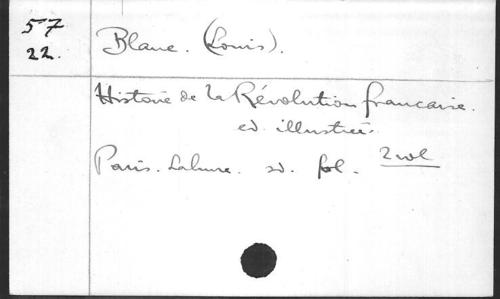 57
22.
Blanc. (Louis).
Histoire de la Révolution française.
ed. illustrée.
Paris. Lahure. sd. fol. 2 vol